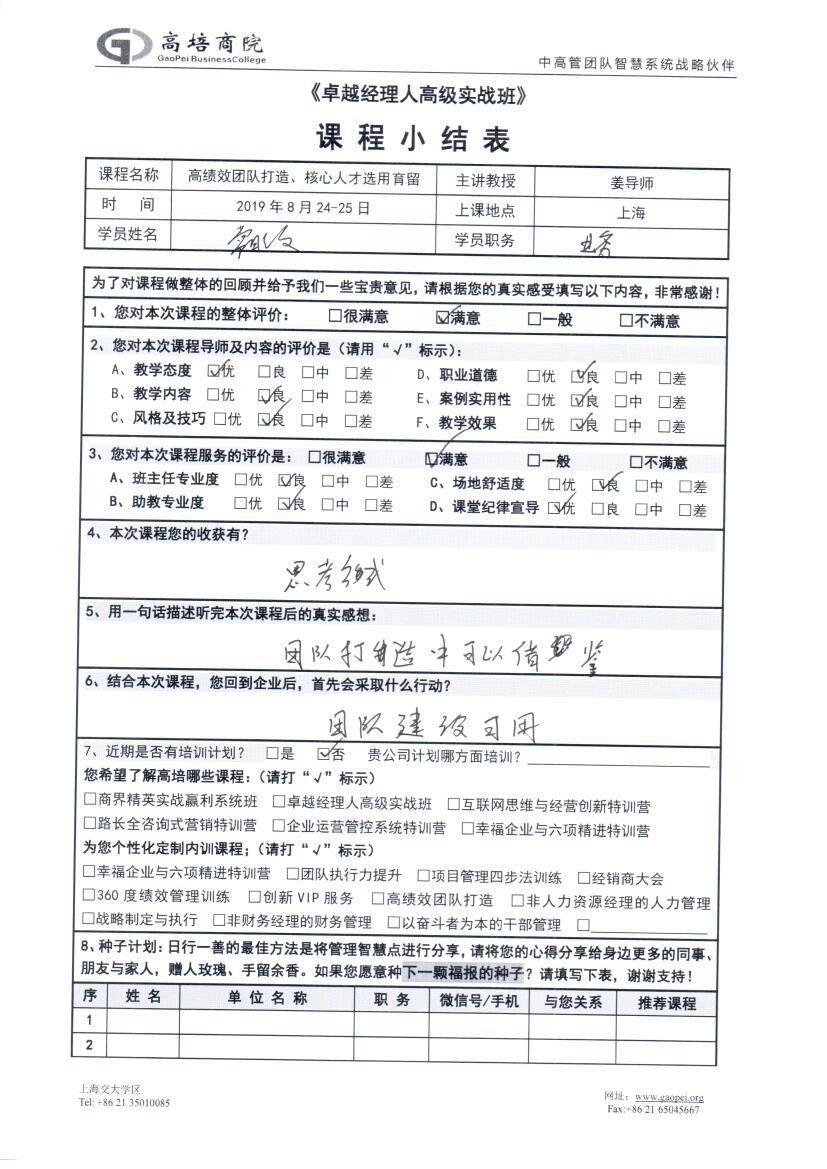 高培商院
GaoPei BusinessCollege
中高管团队智慧系统战略伙伴
《卓越经理人高级实战班》
课程小结表
课程名称 高绩效团队打造、核心人才选用育留 主讲教授 姜导师
时 间 2019年8月24-25日 上课地点 上海
学员姓名 学员职务
为了对课程做整体的回顾并给予我们一些宝贵意见,请根据您的真实感受填写以下内容,非常感谢!
1、您对本次课程的整体评价: □很满意 ☑满意 □一般 □不满意
2、您对本次课程导师及内容的评价是(请用“√”标示):
A、教学态度 ☑优 □良 □中 □差 D、职业道德 □优 ☑良 □中 □差
B、教学内容 □优 ☑良 □中 □差 E、案例实用性 □优 ☑良 □中 □差
C、风格及技巧 □优 ☑良 □中 □差 F、教学效果 □优 ☑良 □中 □差
3、您对本次课程服务的评价是: □很满意 ☑满意 □一般 □不满意
A、班主任专业度 □优 ☑良 □中 □差 C、场地舒适度 □优 ☑良 □中 □差
B、助教专业度 □优 ☑良 □中 □差 D、课堂纪律宣导 ☑优 □良 □中 □差
4、本次课程您的收获有?
思考
5、用一句话描述听完本次课程后的真实感想:
团队打造中可以借鉴
6、结合本次课程,您回到企业后,首先会采取什么行动?
团队建设可用
7、近期是否有培训计划? □是 ☑否 贵公司计划哪方面培训?
您希望了解高培哪些课程:(请打“√”标示)
□商界精英实战赢利系统班 □卓越经理人高级实战班 □互联网思维与经营创新特训营
□路长全咨询式营销特训营 □企业运营管控系统特训营 □幸福企业与六项精进特训营
为您个性化定制内训课程;(请打“√”标示)
□幸福企业与六项精进特训营 □团队执行力提升 □项目管理四步法训练 □经销商大会
□360度绩效管理训练 □创新VIP服务 □高绩效团队打造 □非人力资源经理的人力管理
□战略制定与执行 □非财务经理的财务管理 □以奋斗者为本的干部管理 □
8、种子计划:日行一善的最佳方法是将管理智慧点进行分享,请将您的心得分享给身边更多的同事、
朋友与家人,赠人玫瑰、手留余香。如果您愿意种下一颗福报的种子?请填写下表,谢谢支持!
序 姓名 单位名称 职务 微信号/手机 与您关系 推荐课程
1
2
上海交大学区
Tel: +86 21 35010085
网址: www.gaopei.org
Fax:+86 21 65045667